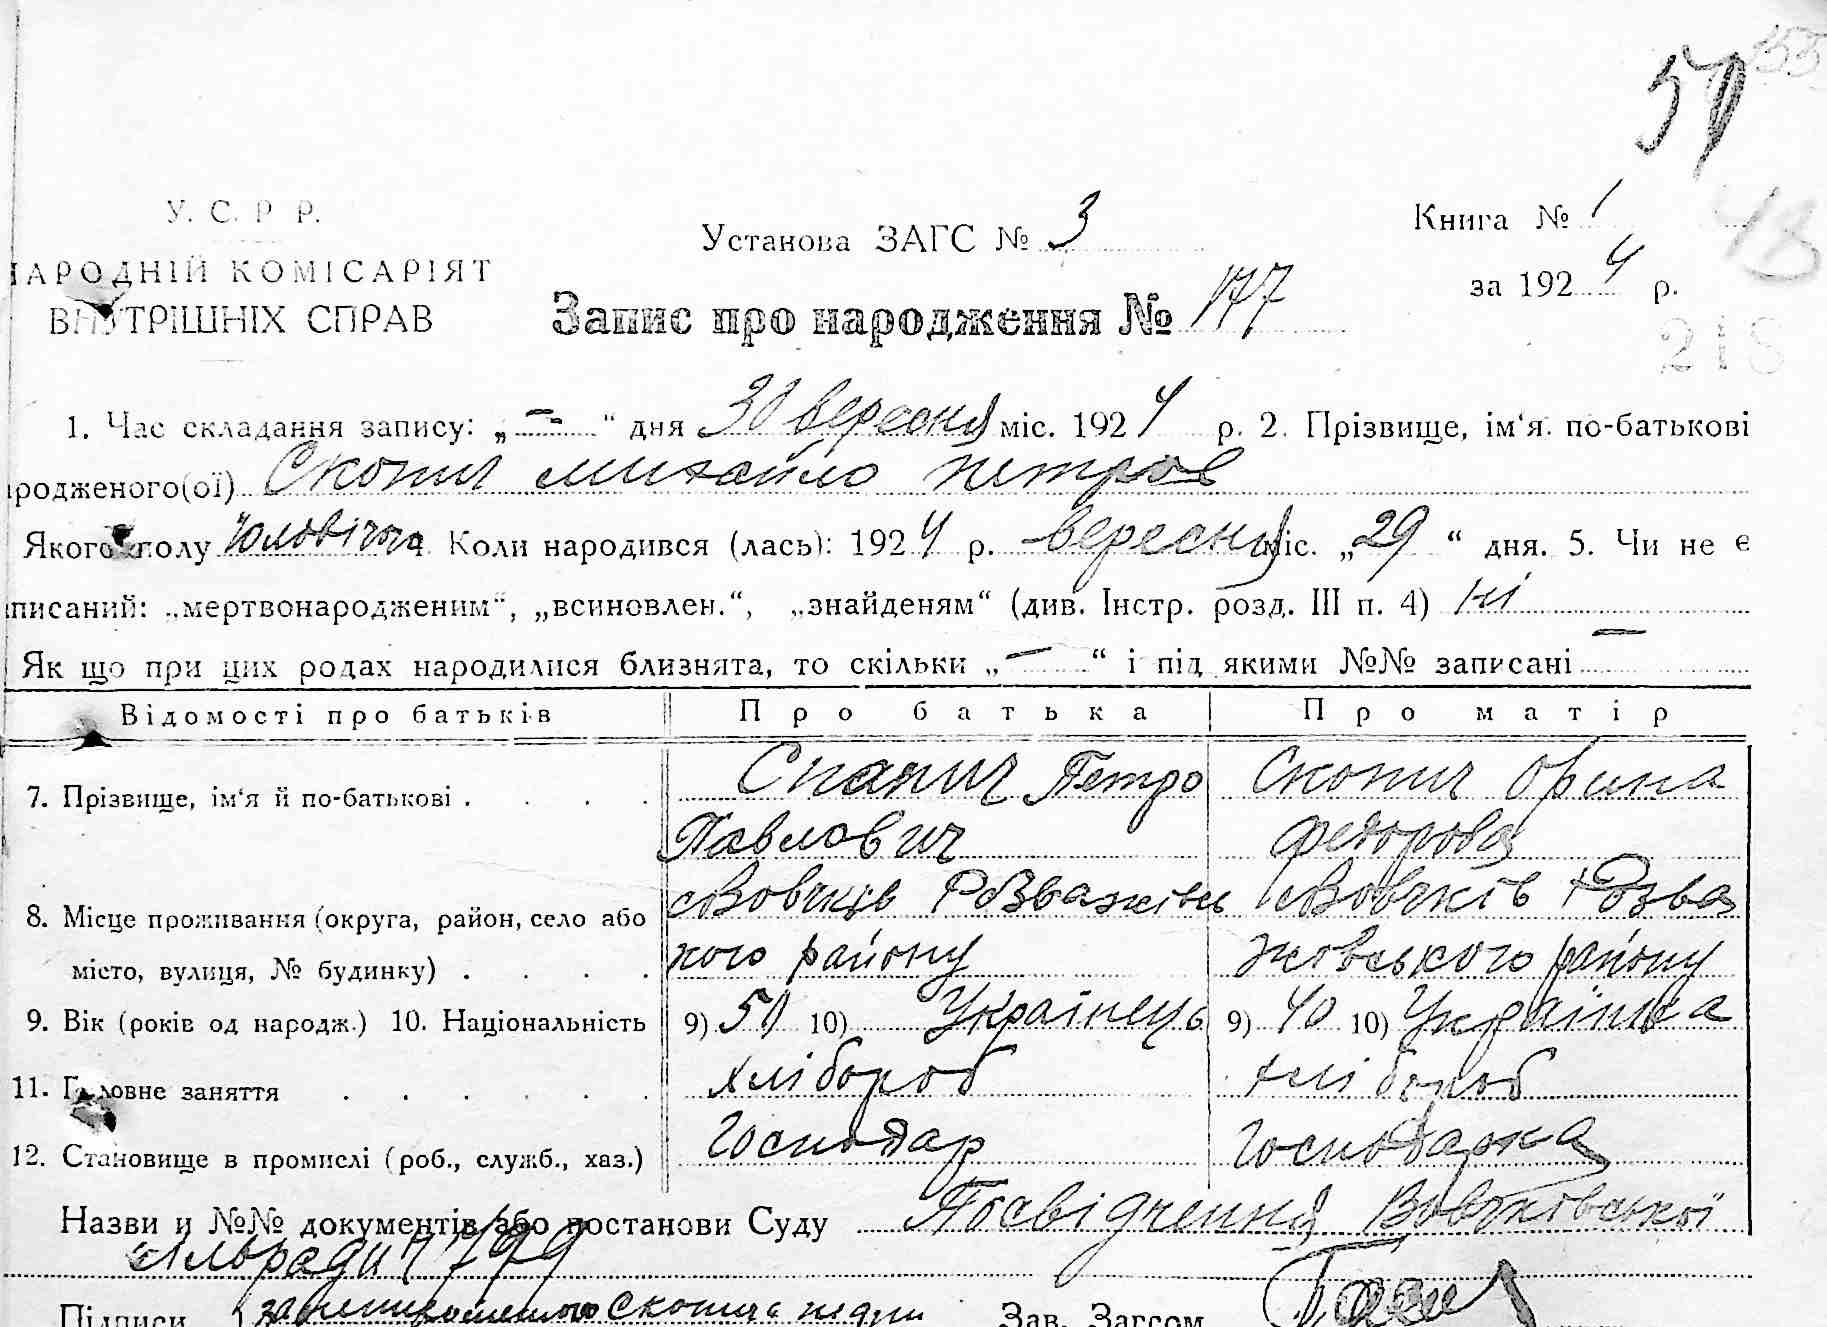 50
48
218
У. С. Р Р.
НАРОДНІЙ КОМІСАРІЯТ
ВНУТРІШНІХ СПРАВ
Установа ЗАГС № 3
Книга № 1
за 1924 р.
Запис про народження № 177
1. Час складання запису: „ — “ дня 30 вересня міс. 1924 р. 2. Прізвище, ім‘я. по-батькові
родженого(ої) Скопич михайло петров
Якого полу чоловічого Коли народився (лась): 1924 р. вересня міс. „29“ дня. 5. Чи не є
писаний: „мертвонародженим“, „всиновлен.“, „знайденям“ (див. Інстр. розд. III п. 4) ні
Як що при цих родах народилися близнята, то скільки „ — “ і під якими №№ записані —
Відомості про батьків Про батька Про матір
7. Прізвище, ім‘я й по-батькові . . . . Скапич Петро Скопич Орина
Павлович Федорова
8. Місце проживання (округа, район, село або сВовчків Розважівсь сВовчків Розва
місто, вулиця, № будинку) . . . . кого району жовського району
9. Вік (років од народж.) 10. Національність 9) 50 10) Українець 9) 40 10) Українка
11. Головне заняття . . . . . . хлібороб хлібороб
12. Становище в промислі (роб., служб., хаз.) Господар Господарка
Назви и №№ документів або постанови Суду Посвідчення Вовчківської
сільради
Підписи Скопича Зав. Загсом